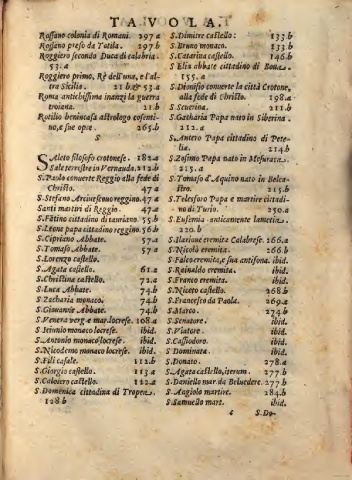 TAVOLA.
Rossano colonia di Romani. 297 a
Rossano preso da Totila. 297 b
Roggiero secondo Duca di calabria.
53.a
Roggiero primo, Rè dell'una, e l'al-
tra Sicilia. 21 b & 53.a
Roma antichissima inanzi la guerra
troiana. 21 b
Rotilio benincasa astrologo cosenti-
no, e sue opre. 265.b
S
SAleto filosofo crotonese. 182 a
Sale terrestre in Vernauda. 212 b
S.Paolo conuerte Reggio alla fede di
Christo. 47 a
S.Stefano Arciuescouo reggino. 47 a
Santi martiri di Reggio. 47 a
S.Fètino cittadino di tauriano. 55 b
S.Leone papa cittadino reggino. 56 b
S.Cipriano Abbate. 57 a
S.Tomaso Abbate. 57 a
S.Lorenzo castello.
S.Agata castello. 61 a
S.Christina castello. 72.a
S.Luca Abbate. 74.b
S.Zacharia monaco. 74.b
S.Giouanne Abbate. 74.b
S.Venera verg e mar.locrese. 108 a
S.Sciunio monaco locrese. ibid.
S.Antonio monaco locrese. ibid.
S.Nicodemo monaco locrese. ibid.
S.Fili casale. 112.b
S.Giorgio castello. 113.a
S.Caloiero castello. 122.a
S.Domenica cittadina di Tropea
128 b
S.Dimitre castello: 133 b
S.Bruno monaco. 133.b
S.Catarina castello. 146.b
S.Elia abbate cittadino di Boua.
155.a
S.Dionisio conuerte la città Crotone,
alla fede di Christo. 198 a
S.Seuerina. 211.b
S.Zacharia Papa nato in Siberina.
212.a
S.Antero Papa cittadino di Pete-
lia. 214.b
S.Zosimo Papa nato in Mesuraca.
215.a
S.Tomaso d'Aquino nato in Belca-
stro. 215.b
S.Telesforo Papa e martire cittadi-
no di Turio. 250.a
S.Eufemia anticamente lametia.
220.b
S.Ilarione eremita Calabrese. 266.a
S.Nicolò eremita. 266.b
S.Falco eremita, e sua antifona. ibid.
S.Rainaldo eremita. ibid.
S.Franco eremita. ibid.
S.Niceto castello. 268.b
S.Francesco da Paola. 269.a
S.Marco. 274.b
S.Senatore. ibid.
S.Viatore. ibid.
S.Cassiodoro. ibid.
S.Dominata. ibid.
S.Donato. 278.a
S.Agata castello, iterum. 277.b
S.Daniello mar.da Beluedere. 277 b
S.Angiolo martire. 284.b
S.Samuello mart. ibid.
c S.Do-